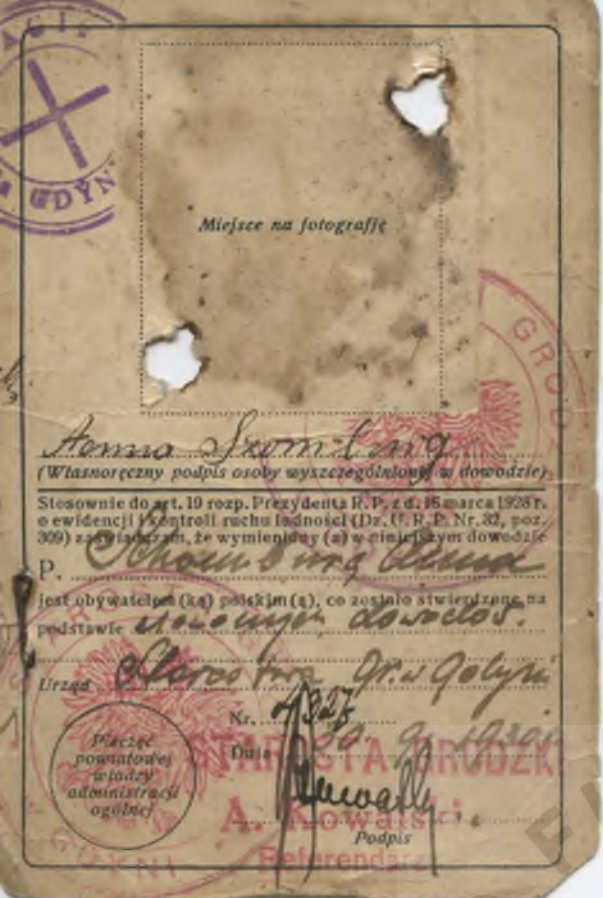 GDYN
Miejsce na fotografję
GROD
Anna Szomburg
(Własnoręczny podpis osoby wyszczególnionej w dowodzie)
Stosownie do art. 19 rozp. Prezydenta R. P. z d. 16 marca 1928 r.
o ewidencji i kontroli ruchu ludności (Dz. U. R. P. Nr. 32, poz.
309) zaświadczam, że wymieniony (a) w niniejszym dowodzie
P. Schomburg Anna
jest obywatelem (ką) polskim (ą), co zostało stwierdzone na
podstawie dowodów.
Urząd Starostwa Gr. w Gdyni
Nr. 327
Dnia 30. 9. 1930
Pieczęć
powiatowej
władzy
administracji
ogólnej
STAROSTA GRODZKI
A. Kowalski
Podpis
Referendarz
GDYNI